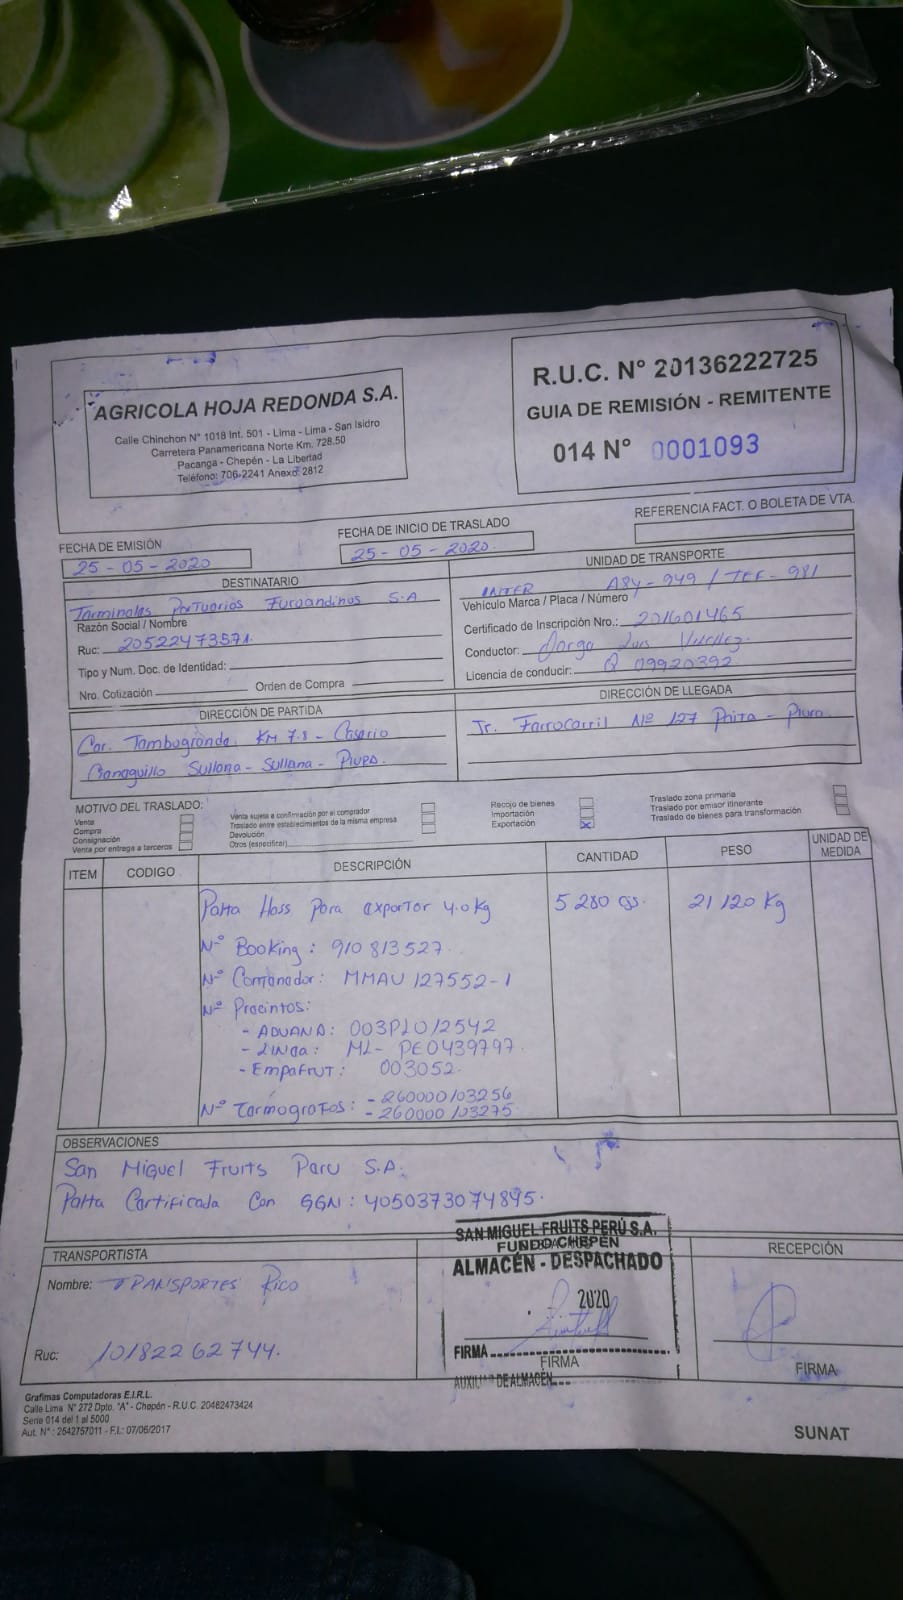 AGRICOLA HOJA REDONDA S.A.
Calle Chinchon N° 1018 Int. 501 - Lima - Lima - San Isidro
Carretera Panamericana Norte Km. 728.50
Pacanga - Chepén - La Libertad
Teléfono: 706-2241 Anexo: 2812
R.U.C. N° 20136222725
GUIA DE REMISIÓN - REMITENTE
014 N° 0001093
FECHA DE EMISIÓN
25-05-2020
FECHA DE INICIO DE TRASLADO
25-05-2020
REFERENCIA FACT. O BOLETA DE VTA.
DESTINATARIO
Terminales Portuarios Euroandinos S.A
Razón Social / Nombre
Ruc: 20522473571
Tipo y Num. Doc. de Identidad:
Nro. Cotización Orden de Compra
UNIDAD DE TRANSPORTE
INTER A84-949 / TEF-981
Vehículo Marca / Placa / Número
Certificado de Inscripción Nro.: 201601465
Conductor: Jorge Luis
Licencia de conducir: Q 09920392
DIRECCIÓN DE PARTIDA
Car. Tambogrande KM 7.8 - Caserio
Sullana - Sullana - Piura
DIRECCIÓN DE LLEGADA
Jr. Ferrocarril Nº 127 Paita - Piura
MOTIVO DEL TRASLADO:
Venta
Compra
Consignación
Venta por entrega a terceros
Venta sujeta a confirmación por el comprador
Traslado entre establecimientos de la misma empresa
Devolución
Otros (especificar)
Recojo de bienes
Importación
Exportación X
Traslado zona primaria
Traslado por emisor itinerante
Traslado de bienes para transformación
ITEM CODIGO DESCRIPCIÓN CANTIDAD PESO UNIDAD DE MEDIDA
Palta Hass Para exportar 4.0 kg 5 280 cjs. 21 120 Kg
Nº Booking: 910813527.
Nº Contenedor: MMAU 127552-1
Nº Precintos:
- ADUANA: 003PLO12542
- Linea: ML- PE0439797.
- EmpaFrut: 003052.
Nº Termografos: - 260000103256
- 260000103275
OBSERVACIONES
San Miguel Fruits Peru S.A.
Palta Certificada Con GGN: 4050373074895.
TRANSPORTISTA
Nombre: TRANSPORTES Rico
Ruc: 10182262744.
SAN MIGUEL FRUITS PERÚ S.A.
FUNDO CHEPÉN
ALMACÉN - DESPACHADO
2020
FIRMA
FIRMA
AUXILIAR DE ALMACÉN
RECEPCIÓN
FIRMA
Grafimas Computadoras E.I.R.L.
Calle Lima N° 272 Dpto. "A" - Chepén - R.U.C. 20482473424
Serie 014 del 1 al 5000
Aut. N° : 2542757011 - F.I.: 07/06/2017
SUNAT